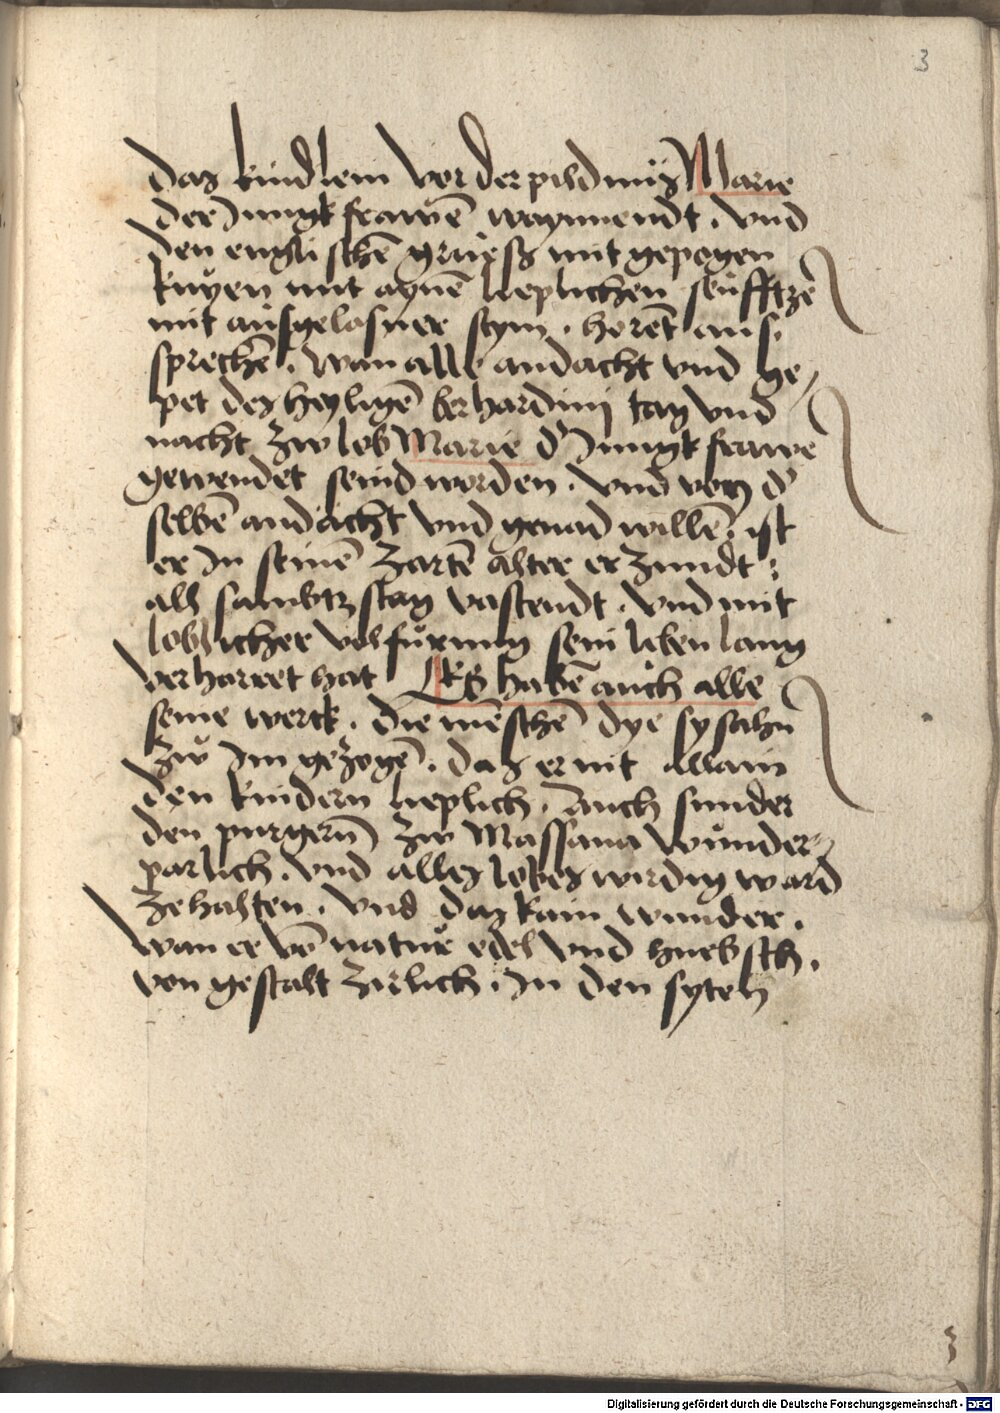 3
daz kindlein vor der pildnüs Marie
der Jungkfrawē waynnendt . vnd
den englischē gruesz mit gepogen
knyen mit aynē lieplichen seüfftzē
mit ausgelosner stym . horēt aus
sprechē . wan alle andacht vnd ge
pet des heyligē berhardinj tag vnd
nacht zw lob Marie d' Jungkfrawe
gewendet seind worden . vnd von d'
selbē andacht vnd genad willē . ist
er Jn seinē zartē alter erzundt :
als sambtzstag vastendt . vnd mit
loblicher volfürung sein leben lang
verharret hat Es habē auch alle
seine werck . die mēschē dye sy sahn
zw Jm gezogē . daz er nit allain
den kindern lieplich . auch sunder
den purgern zw Massana wunder
parlich . vnd alles lobes wirdig ward
zehalten . vnd daz kain wunder .
wan er vō natur edel vnd huebsch .
von gestalt zirlich . Jn den syten
3
Digitalisierung gefördert durch die Deutsche Forschungsgemeinschaft - DFG